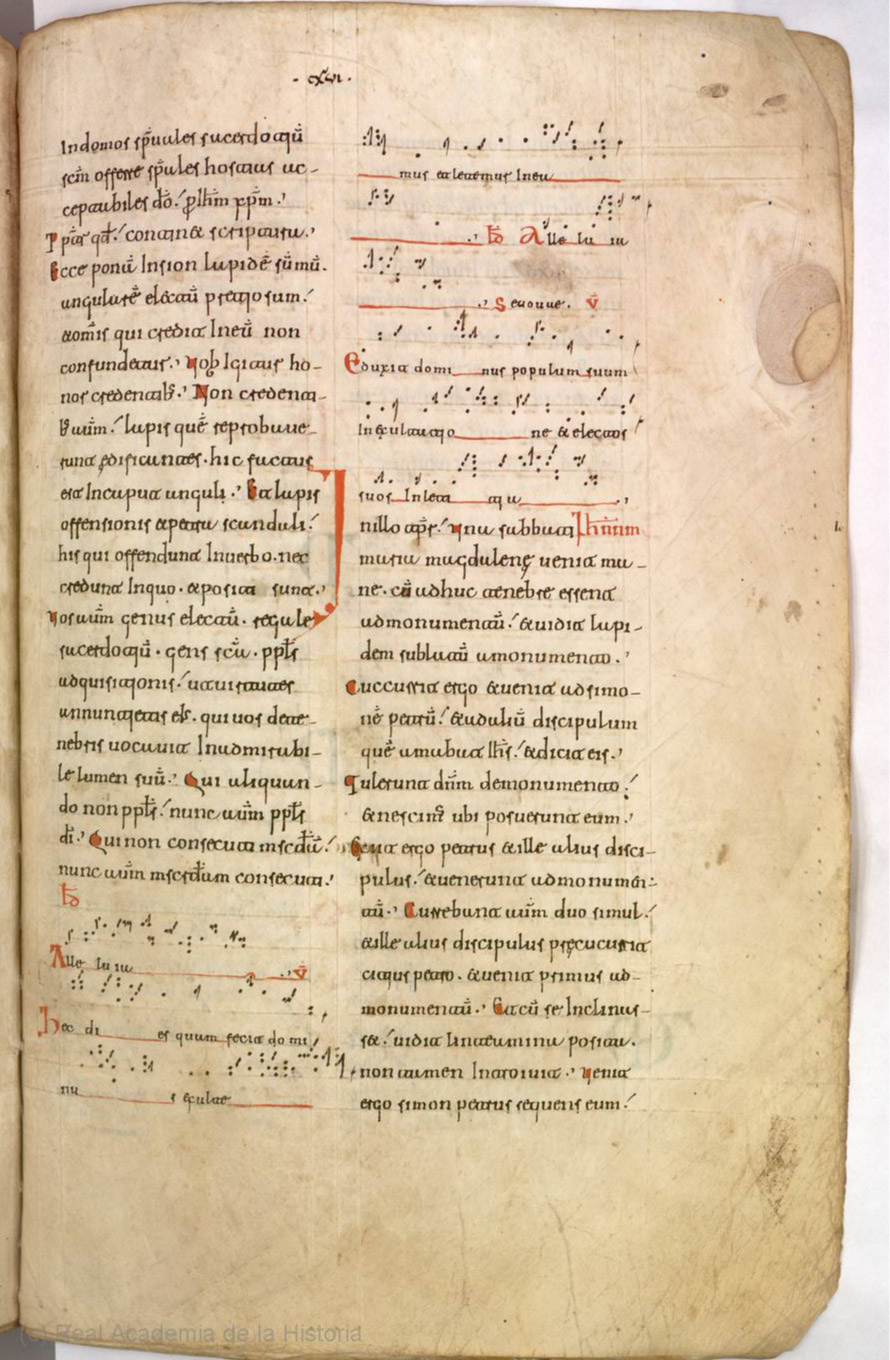 · cxlvi ·
In domos sp̄uales sacerdotiū
sc̄m offerre sp̄ules hostias ac-
ceptabiles dō.' p̱ ih̄m xp̄m.'
P pat̄ qd̄.' continet scriptura.'
Ecce ponā In sion lapidē sūmū.
angularē electū pretiosum.'
et om̄is qui credit In eū non
confundetur.' Uob̄ Igitur ho-
nor credentib;.' Non credenti-
b; aūm.' lapis quē reprobave-
runt ędificantes. hic factus
est In caput anguli.' Et lapis
offensionis et petra scandali.'
his qui offendunt In verbo. nec
credunt In quo. et positi sunt.'
Uos aūm genus electū. regale
sacerdotiū. gens sc̄a. pp̄ls
adquisitionis.' ut virtutes
annuntietis ei;. qui vos de te-
nebris vocavit In admirabi-
le lumen suū.' Qui aliquan-
do non pp̄ls.' nunc aūm pp̄ls
dī.' Qui non consecuti mscdiā.'
nunc aūm mscrdiam consecuti.'
Alle lu ia v̄
Hec di es quam fecit do mi
nu s exultae
mus et letemus In ea
Alle lu ia
S evovae. v̄
Eduxit domi nus populum suum
In exultatio ne et electos
suos In leti ti a
nillo tpr̄.' Una sabbati Ih̄nm
maria magdalenę venit ma-
ne. cū adhuc tenebre essent
ad monumentū.' et vidit lapi-
dem sublatū a monumento.'
Cuccurrit ergo et venit ad simo-
nē petrū.' et ad aliū discipulum
quē amabat ih̄s.' et dicit eis.'
Tulerunt dn̄m de monumento.'
et nescim; ubi posuerunt eum.'
Exiit ergo petrus et ille alius disci-
pulus.' et venerunt ad monumēn-
tū.' Currebant aūm duo simul.'
et ille alius discipulus pręcucurrit
citius petro. et venit primus ad
monumentū.' Et cū se Inclinas-
set.' vidit linteamina posita.
non tamen Introivit.' Venit
ergo simon petrus sequens eum.'
(c) Real Academia de la Historia